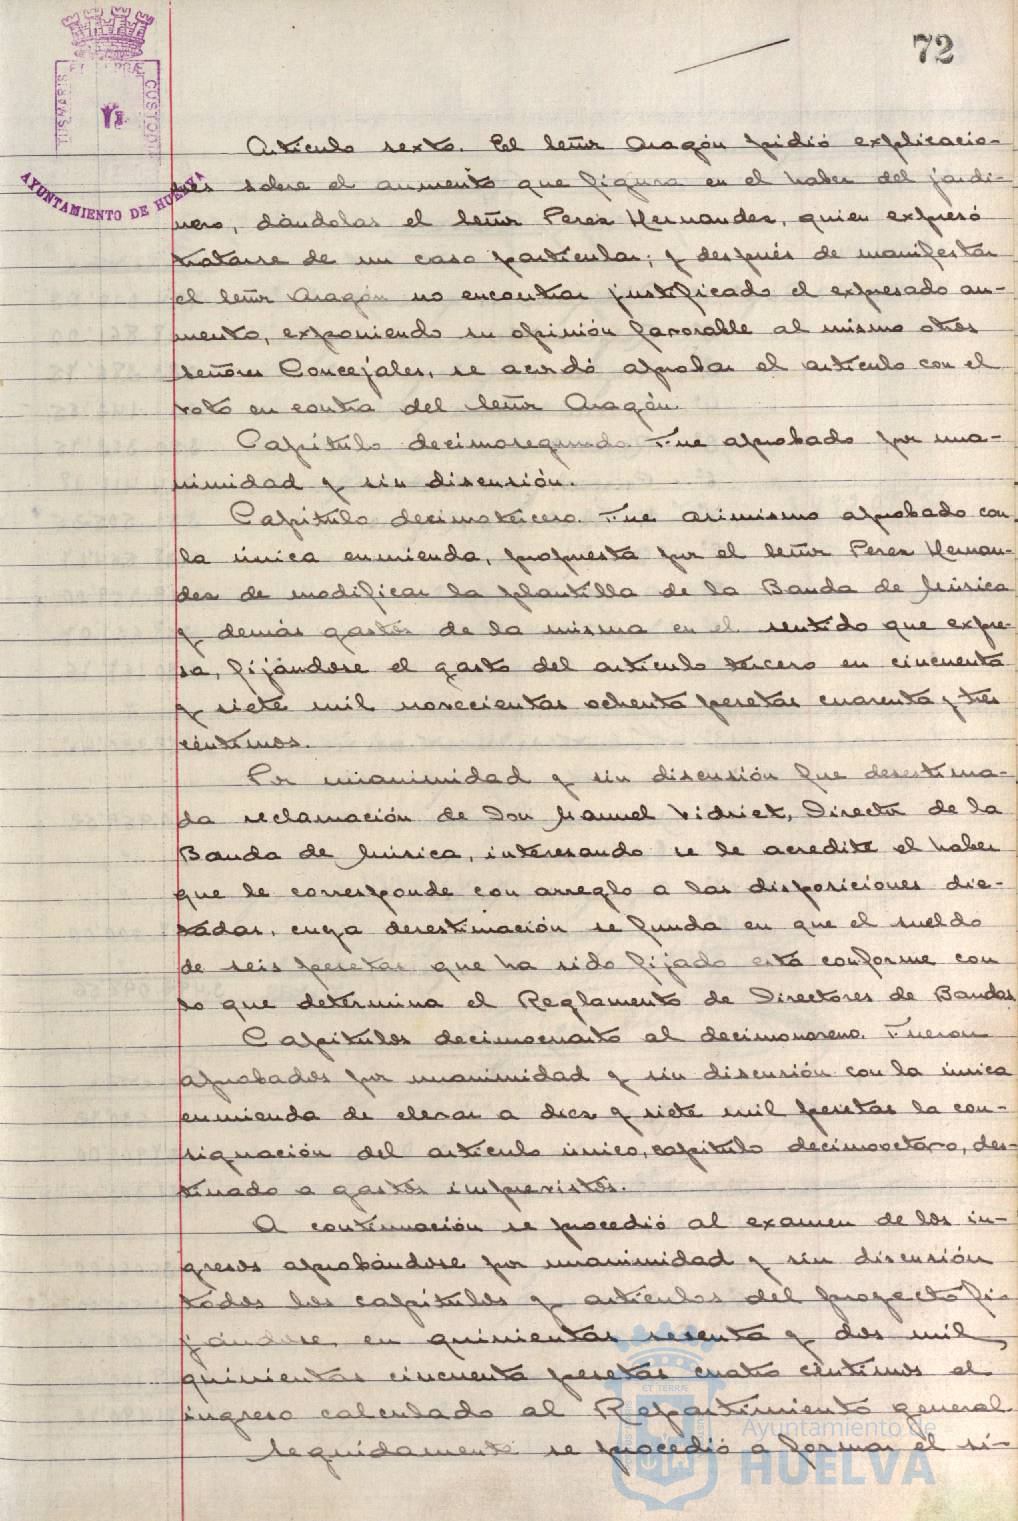 72
AYUNTAMIENTO DE HUELVA
Artículo sexto. El Señor Aragón pidió explicacio-
nes sobre el aumento que figura en el haber del jardi-
nero, dándolas el Señor Perez Hernandez, quien expresó
tratarse de un caso particular; y después de manifestar
el Señor Aragón no encontrar justificado el expresado au-
mento, exponiendo su opinión favorable al mismo otros
señores Concejales, se acordó aprobar el artículo con el
voto en contra del Señor Aragón.
Capítulo decimosegundo. Fue aprobado por una-
nimidad y sin discusión.
Capítulo decimotercero. Fue asimismo aprobado con
la única enmienda, propuesta por el Señor Perez Hernan-
dez de modificar la plantilla de la Banda de Música
y demás gastos de la misma en el sentido que expre-
sa, fijándose el gasto del artículo tercero en cincuenta
y siete mil novecientas ochenta pesetas cuarenta y tres
céntimos.
Por unanimidad y sin discusión fue desestima-
da reclamación de Don Manuel Vidriet, Director de la
Banda de Música, interesando se le acredite el haber
que le corresponde con arreglo a las disposiciones dic-
tadas, cuya desestimación se funda en que el sueldo
de seis pesetas que ha sido fijado está conforme con
lo que determina el Reglamento de Directores de Bandas
Capítulos decimocuarto al decimonoveno. Fueron
aprobados por unanimidad y sin discusión con la única
enmienda de elevar a diez y siete mil pesetas la con-
signación del artículo único, capítulo decimooctavo, des-
tinado a gastos imprevistos.
A continuación se procedió al examen de los in-
gresos aprobándose por unanimidad y sin discusión
todos los capítulos y artículos del proyecto fi-
jándose en quinientas sesenta y dos mil
quinientas cincuenta pesetas cuatro céntimos el
ingreso calculado al Repartimiento general
Seguidamente se procedió a formar el si-
Ayuntamiento de
HUELVA